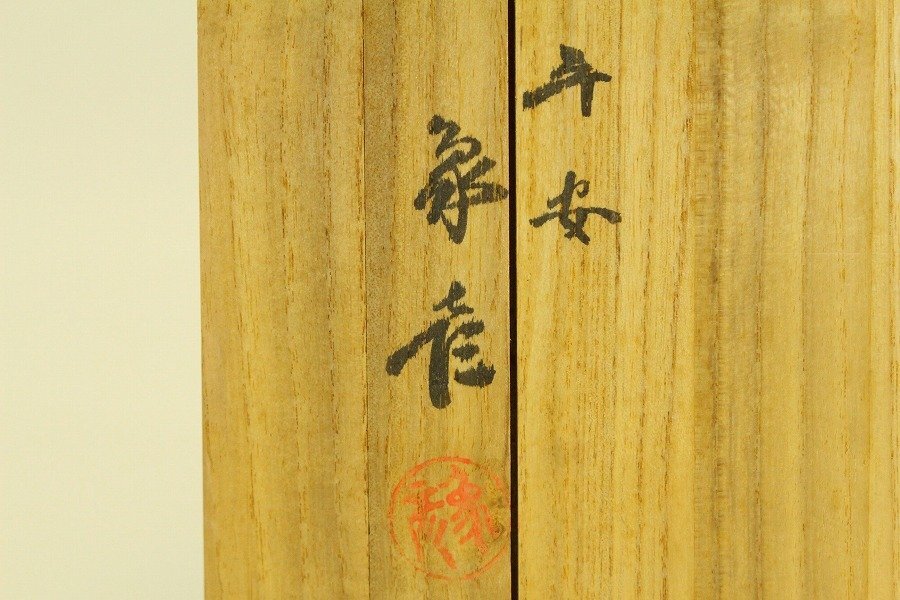 平安
象彦